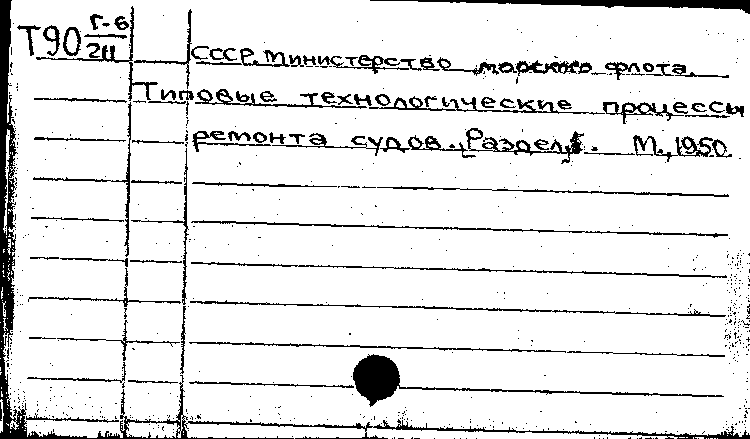 Т90 Г-6
211
СССР. Министерство морского флота.
Типовые технологические процессы
ремонта судов. Раздел М., 1950.